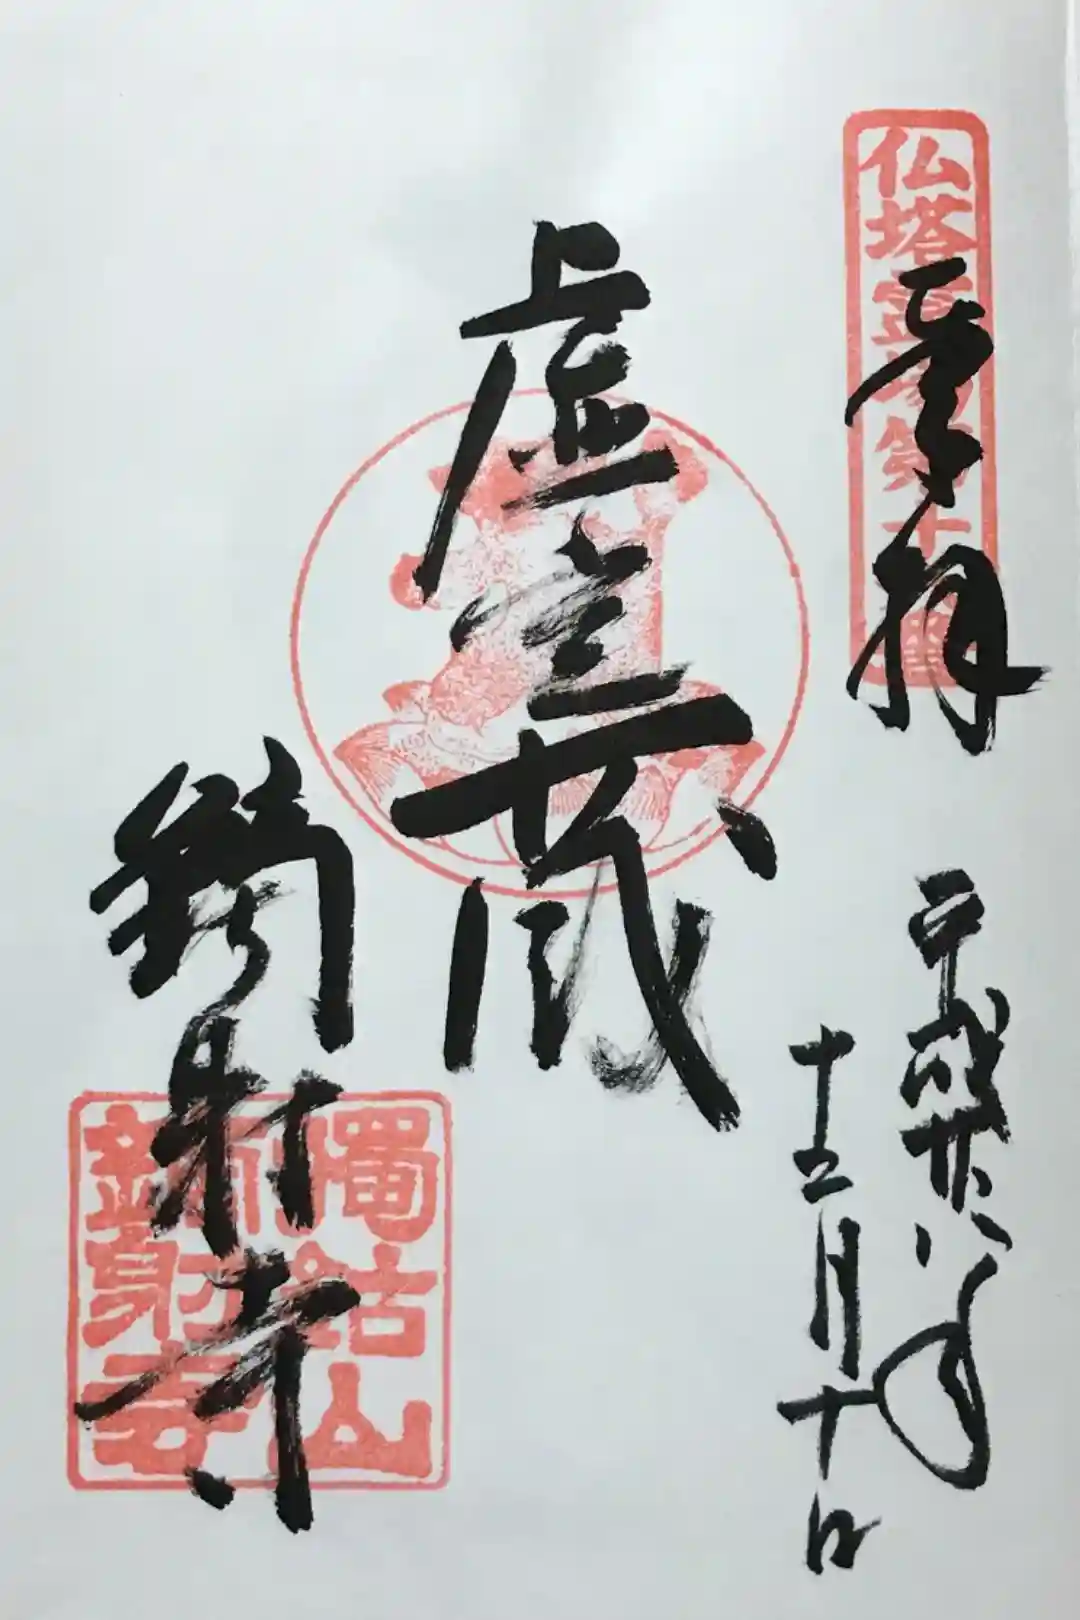 仏塔霊場第十番
奉拝
平成廿八年
十二月十日
虚空蔵
鏑射寺
独鈷山
鏑射寺